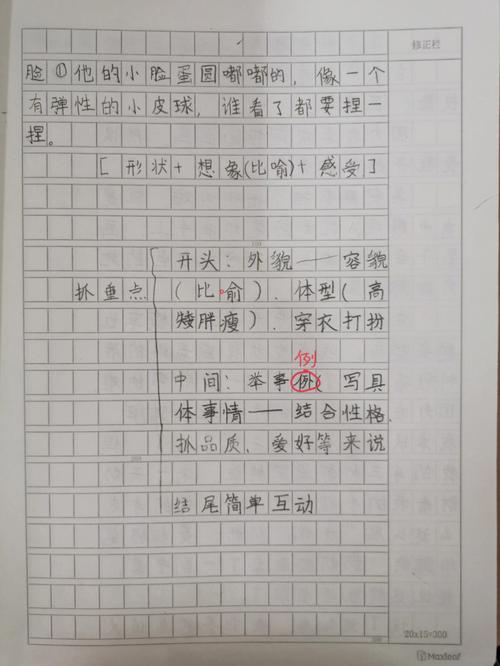 修正栏
脸①他的小脸蛋圆嘟嘟的，像一个
有弹性的小皮球，谁看了都要捏一
捏。
[形状+想象(比喻)+感受]
开头：外貌——容貌
抓重点
(比喻)、体型(高
矮胖瘦)、穿衣打扮
例
中间：举事例(写具
体事情——结合性格、
抓品质、爱好等来说
结尾简单互动
20x15=300
Maxleaf